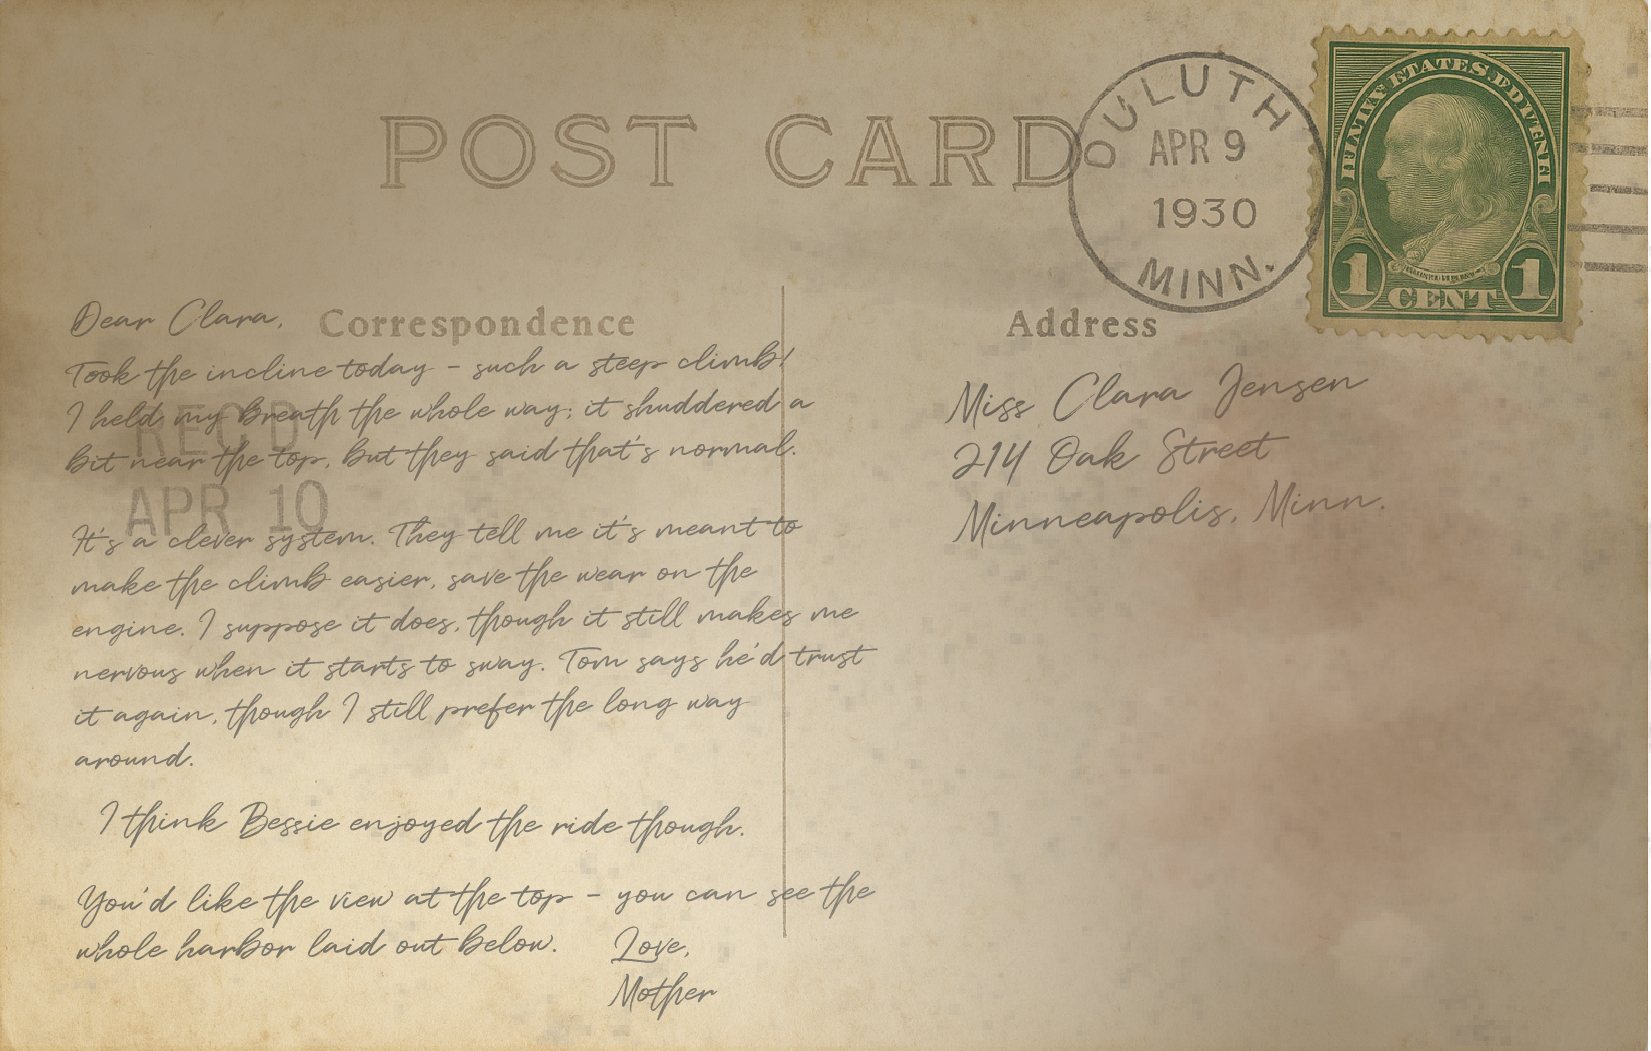 POST CARD
DULUTH
APR 9
1930
MINN.
1 CENT 1
Correspondence
Address
Dear Clara,
Took the incline today - such a steep climb!
I held my breath the whole way; it shuddered a
bit near the top, but they said that's normal.
REC'D
APR 10
It's a clever system. They tell me it's meant to
make the climb easier, save the wear on the
engine. I suppose it does, though it still makes me
nervous when it starts to sway. Tom says he'd trust
it again, though I still prefer the long way
around.
I think Bessie enjoyed the ride though.
You'd like the view at the top - you can see the
whole harbor laid out below.
Love,
Mother
Miss Clara Jensen
214 Oak Street
Minneapolis, Minn.